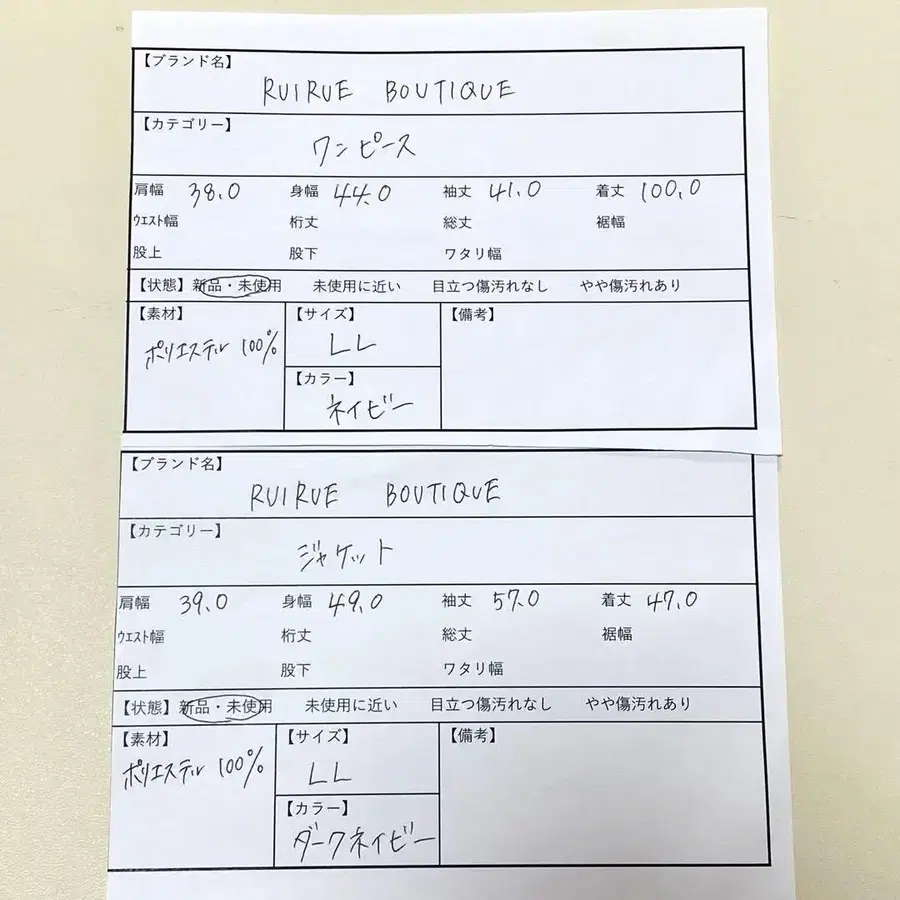 【ブランド名】
RUIRUE BOUTIQUE
【カテゴリー】
ワンピース
肩幅 38.0 身幅 44.0 袖丈 41.0 着丈 100.0
ウエスト幅 裄丈 総丈 裾幅
股上 股下 ワタリ幅
【状態】新品・未使用 未使用に近い 目立つ傷汚れなし やや傷汚れあり
【素材】 【サイズ】 【備考】
ポリエステル 100% LL
【カラー】
ネイビー
【ブランド名】
RUIRUE BOUTIQUE
【カテゴリー】
ジャケット
肩幅 39.0 身幅 49.0 袖丈 57.0 着丈 47.0
ウエスト幅 裄丈 総丈 裾幅
股上 股下 ワタリ幅
【状態】新品・未使用 未使用に近い 目立つ傷汚れなし やや傷汚れあり
【素材】 【サイズ】 【備考】
ポリエステル 100% LL
【カラー】
ダークネイビー